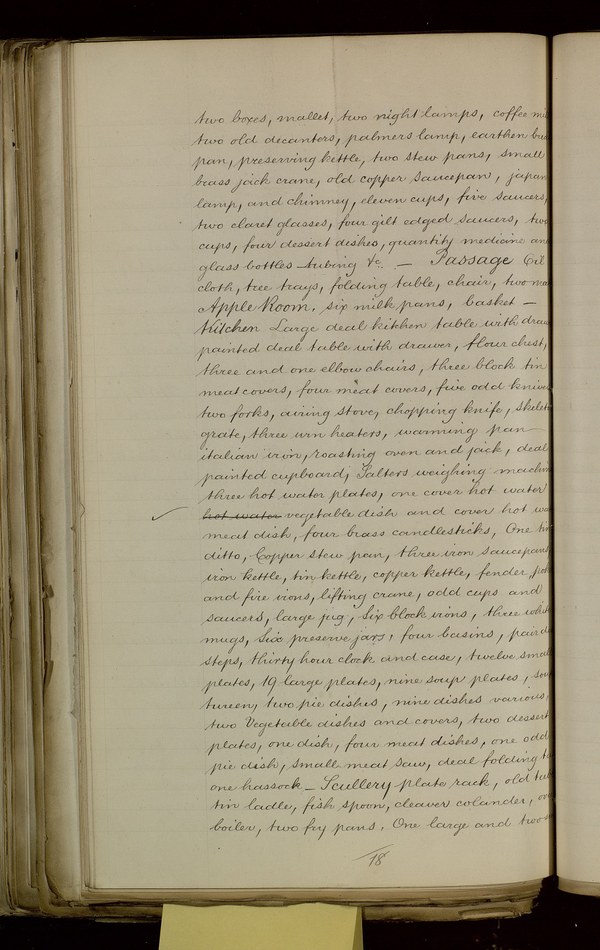 two boxes, mallet, two night lamps, coffee
two old decanters, palmers lamp, earthen
pan, preserving kettle, two stew pans, small
brass jack crane, old copper saucepan, japan
lamp, and chimney, eleven cups, five saucers,
two claret glasses, four gilt edged saucers, two
cups, four dessert dishes, quantity medicine
glass bottles – tubing &c. — Passage Oil
cloth, tree trays, folding table, chair, two
Apple Room, six milk pans, basket —
Kitchen Large deal kitchen table with
painted deal table with drawer, flour chest,
three and one elbow chairs, three block tin
meat covers, four meat covers, five odd knives
two forks, airing stove, chopping knife,
grate, three urn heaters, warming pan
italian iron, roasting oven and jack, deal
painted cupboard, Salters weighing
three hot water plates, one cover hot water
hot water vegetable dish and cover hot
meat dish, four brass candlesticks, One tin
ditto, Copper stew pan, three iron saucepans
iron kettle, tin kettle, copper kettle, fender,
and fire irons, lifting crane, odd cups and
saucers, large jug, six block irons, three
mugs, six preserve jars, four basins, pair
steps, thirty hour clock and case, twelve small
plates, 19 large plates, nine soup plates,
tureen, two pie dishes, nine dishes various,
two Vegetable dishes and covers, two dessert
plates, one dish, four meat dishes, one odd
pie dish, small meat saw, deal folding
one hassock — Scullery plate rack, old
tin ladle, fish spoon, cleaver colander,
boiler, two fry pans, One large and two
18